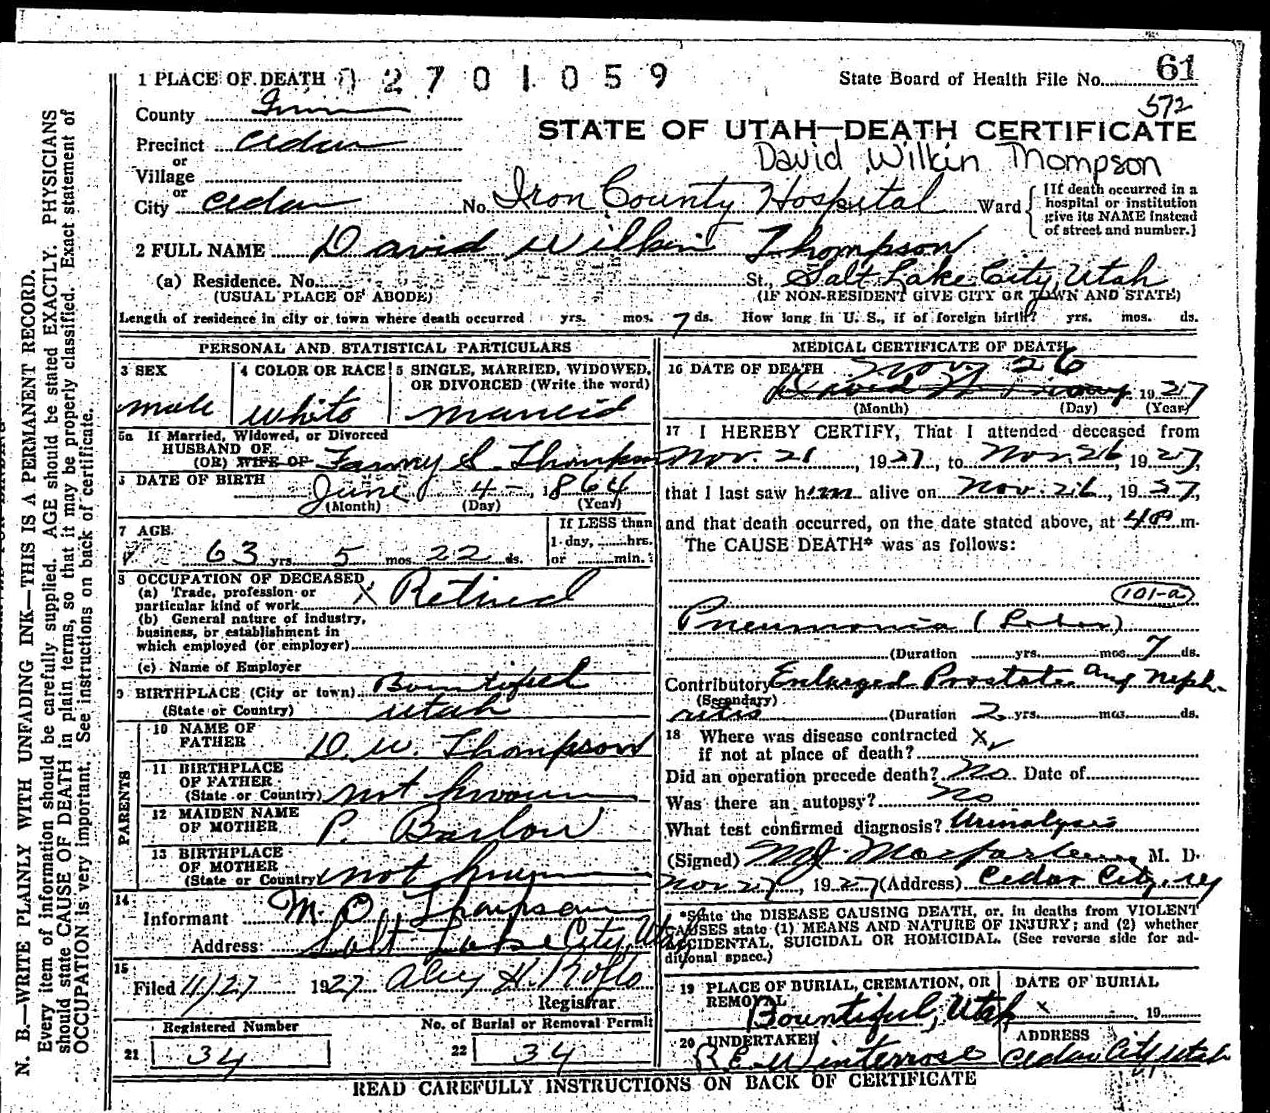 1 PLACE OF DEATH 02701059 State Board of Health File No. 61
572
County Iron
STATE OF UTAH—DEATH CERTIFICATE
Precinct Cedar
David Wilkin Thompson
or
Village
or
City Cedar No. Iron County Hospital Ward
[If death occurred in a
hospital or institution
give its NAME instead
of street and number.]
2 FULL NAME David Wilkin Thompson
(a) Residence. No. St., Salt Lake City, Utah
(USUAL PLACE OF ABODE) (IF NON-RESIDENT GIVE CITY OR TOWN AND STATE)
Length of residence in city or town where death occurred yrs. mos. 7 ds. How long in U. S., if of foreign birth? yrs. mos. ds.
PERSONAL AND STATISTICAL PARTICULARS
3 SEX 4 COLOR OR RACE 5 SINGLE, MARRIED, WIDOWED,
OR DIVORCED (Write the word)
male white married
5a If Married, Widowed, or Divorced
HUSBAND OF
(OR) WIFE OF Fanny S. Thompson
6 DATE OF BIRTH June 4 - 1864
(Month) (Day) (Year)
7 AGE If LESS than
1 day, hrs.
63 yrs. 5 mos. 22 ds. or min.
8 OCCUPATION OF DECEASED
(a) Trade, profession or
particular kind of work X Retired
(b) General nature of industry,
business, or establishment in
which employed (or employer)
(c) Name of Employer
9 BIRTHPLACE (City or town) Bountiful
(State or Country) Utah
PARENTS
10 NAME OF
FATHER D. W. Thompson
11 BIRTHPLACE
OF FATHER
(State or Country) not known
12 MAIDEN NAME
OF MOTHER P. Barlow
13 BIRTHPLACE
OF MOTHER
(State or Country) not known
14
Informant M. O. Thompson
Address: Salt Lake City, Utah
15
Filed 11/27 1927 Alex H. Rollo
Registrar
Registered Number No. of Burial or Removal Permit
21 34 22 34
MEDICAL CERTIFICATE OF DEATH
16 DATE OF DEATH Nov 26
1927
(Month) (Day) (Year)
17 I HEREBY CERTIFY, That I attended deceased from
Nov. 21, 1927, to Nov. 26 1927,
that I last saw him alive on Nov. 26, 1927,
and that death occurred, on the date stated above, at m.
The CAUSE DEATH* was as follows:
101-a
Pneumonia (Lobar)
(Duration yrs. mos. 7 ds.
Contributory Enlarged Prostate and Neph-
(Secondary)
ritis (Duration 2 yrs. mos. ds.
18 Where was disease contracted X
if not at place of death?
Did an operation precede death? No Date of
Was there an autopsy? No
What test confirmed diagnosis? Urinalysis
(Signed) M J Macfarlane, M. D.
Nov 27, 1927 (Address) Cedar City, U
*State the DISEASE CAUSING DEATH, or, in deaths from VIOLENT
CAUSES state (1) MEANS AND NATURE OF INJURY; and (2) whether
ACCIDENTAL, SUICIDAL OR HOMICIDAL. (See reverse side for ad-
ditional space.)
19 PLACE OF BURIAL, CREMATION, OR DATE OF BURIAL
REMOVAL
Bountiful, Utah x 19
20 UNDERTAKER ADDRESS
R. E. Winterrose Cedar City, Utah
READ CAREFULLY INSTRUCTIONS ON BACK OF CERTIFICATE
N. B.—WRITE PLAINLY WITH UNFADING INK—THIS IS A PERMANENT RECORD.
Every item of information should be carefully supplied. AGE should be stated EXACTLY. PHYSICIANS
should state CAUSE OF DEATH in plain terms, so that it may be properly classified. Exact statement of
OCCUPATION is very important. See instructions on back of certificate.